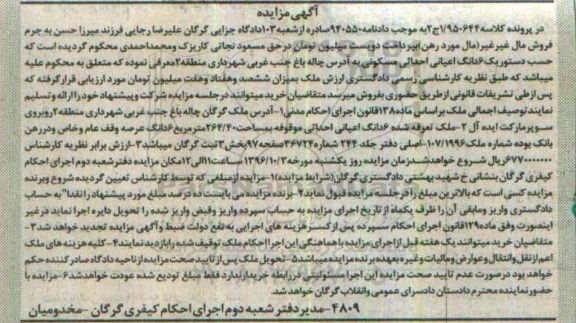 آگهی مزایده
در پرونده کلاسه ۹۵۰۶۴۴/ج۲ به موجب دادنامه ۹۴۰۵۵۰ صادره از شعبه ۱۰۳ دادگاه جزایی گرگان علیرضا رجایی فرزند میرزا حسن به جرم
فروش مال غیر غیر (مال مورد رهن) بپرداخت دویست میلیون تومان درحق مسعود نجاتی کاریزک ومحمداحمدی محکوم گردیده است که
حسب دستور یک ۶ دانگ اعیانی احداثی مسکونی به آدرس چاله باغ جنب غربی شهرداری منطقه ۲ معرفی نموده که متعلق به محکوم علیه
میباشد که طبق نظریه کارشناسی رسمی دادگستری ارزش ملک بمیزان ششصد وهفتاد وهفت میلیون تومان مورد ارزیابی قرارگرفته که
پس از طی تشریفات قانونی از طریق حضوری بفروش میرسد متقاضیان خرید میتوانند درجلسه مزایده شرکت و پیشنهاد خود را ارائه و تسلیم
نمایند توصیف اجمالی ملک بر اساس ماده ۱۳۸ قانون اجرای احکام مدنی ۱- آدرس ملک گرگان چاله باغ جنب غربی شهرداری منطقه ۲ روبروی
سوپرمارکت ایده آل ۲- ملک تعرفه شده ۶ دانگ اعیانی احداثی موقوفه بمساحت ۲۶۴/۴۰ مترمربع ۶ دانگ عرصه وقف عام وخاص ودر رهن
بانک بوده شماره ملک ۱۰۷/۱۹۹۶- اصلی دفتر جلد ۲۴۴ شماره ۳۶۷۲۴ صفحه ۹۷ بخش ۳ ثبت گرگان میباشد ۳- ارزش برابر نظریه کارشناس
۶۷۷۰۰۰۰۰۰۰ ریال شروع خواهدشد زمان مزایده روز یکشنبه مورخه ۱۳۹۶/۱۰/۳ ساعت ۱۱ الی ۱۲ مکان مزایده دفتر شعبه دوم اجرای احکام
کیفری گرگان بنشانی خ شهید بهشتی دادگستری گرگان (شرایط مزایده) ۱- مزایده از مبلغی که توسط کارشناس تعیین گردیده شروع وبرنده
مزایده کسی است که بالاترین مبلغ را درجلسه مزایده قبول نماید ۲- برنده مزایده می بایست ده درصد مبلغ مورد پیشنهاد را نقدا" به حساب
دادگستری واریز ومابقی آن را ظرف یکماه از تاریخ اجرای مزایده به حساب سپرده واریز وفیش واریز شده را تحویل دایره اجرا نماید درغیر
اینصورت وفق ماده ۱۲۹ قانون اجرای احکام سپرده پس از کسر هزینه های اجرایی به نفع دولت ضبط وآگهی مزایده تجدید خواهد شد ۳-
متقاضیان خرید میتوانند یک هفته قبل از اجرای مزایده با هماهنگی این اجرا احکام ملک توقیف شده رابازدید نمایند ۴- کلیه هزینه های ملک
اعم از نقل وانتقال و عوارض ومالیات وغیره بعهده برنده مزایده میباشد ۵- تحویل ملک پس از تایید صحت مزایده از ناحیه دادگاه صادر کننده حکم
خواهد بود درصورت عدم تایید صحت مزایده این اجرا مسئولیتی دررابطه خریدارندارد فقط مبلغ تودیع شده عودت خواهدشد ۶- مزایده با
حضور نماینده محترم دادستان دادسرای عمومی وانقلاب گرگان خواهد شد.
۴۸۰۹- مدیر دفتر شعبه دوم اجرای احکام کیفری گرگان - مخدومیان